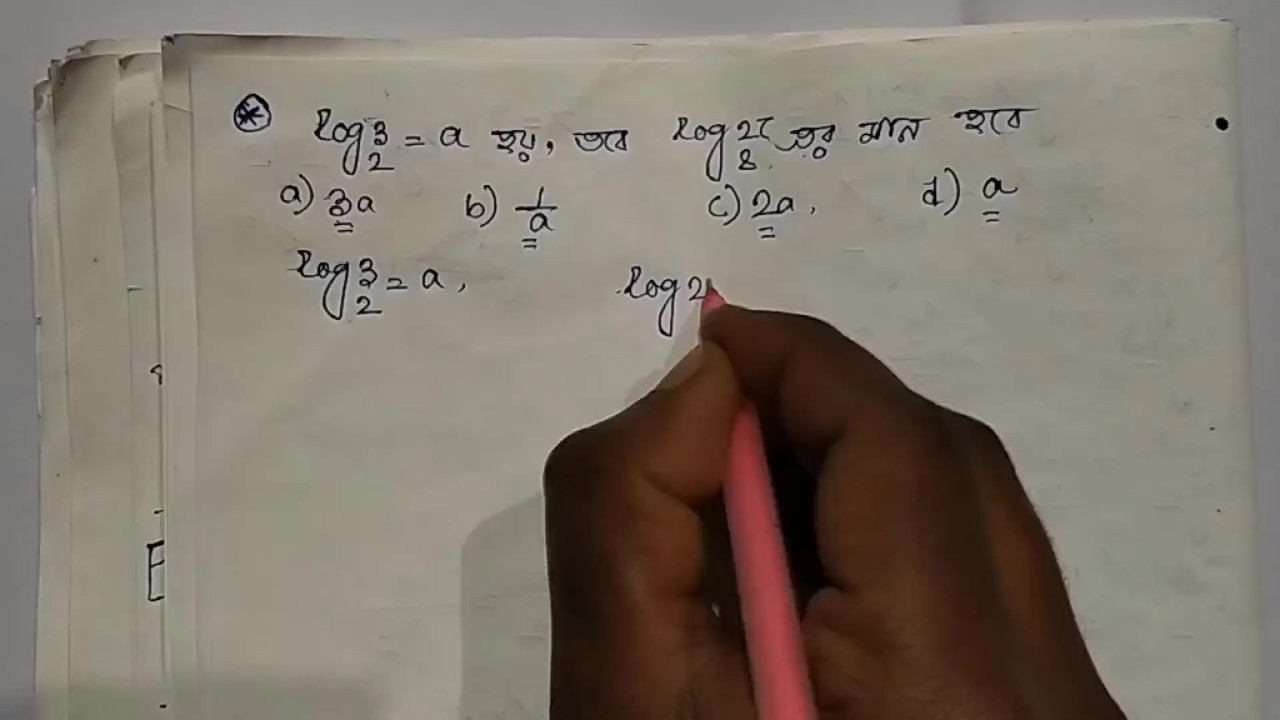 * log₂3 = a হয়, তবে log₈27 এর মান হবে
a) 3a b) 1/a c) 2a, d) a
log₂3 = a, log 2